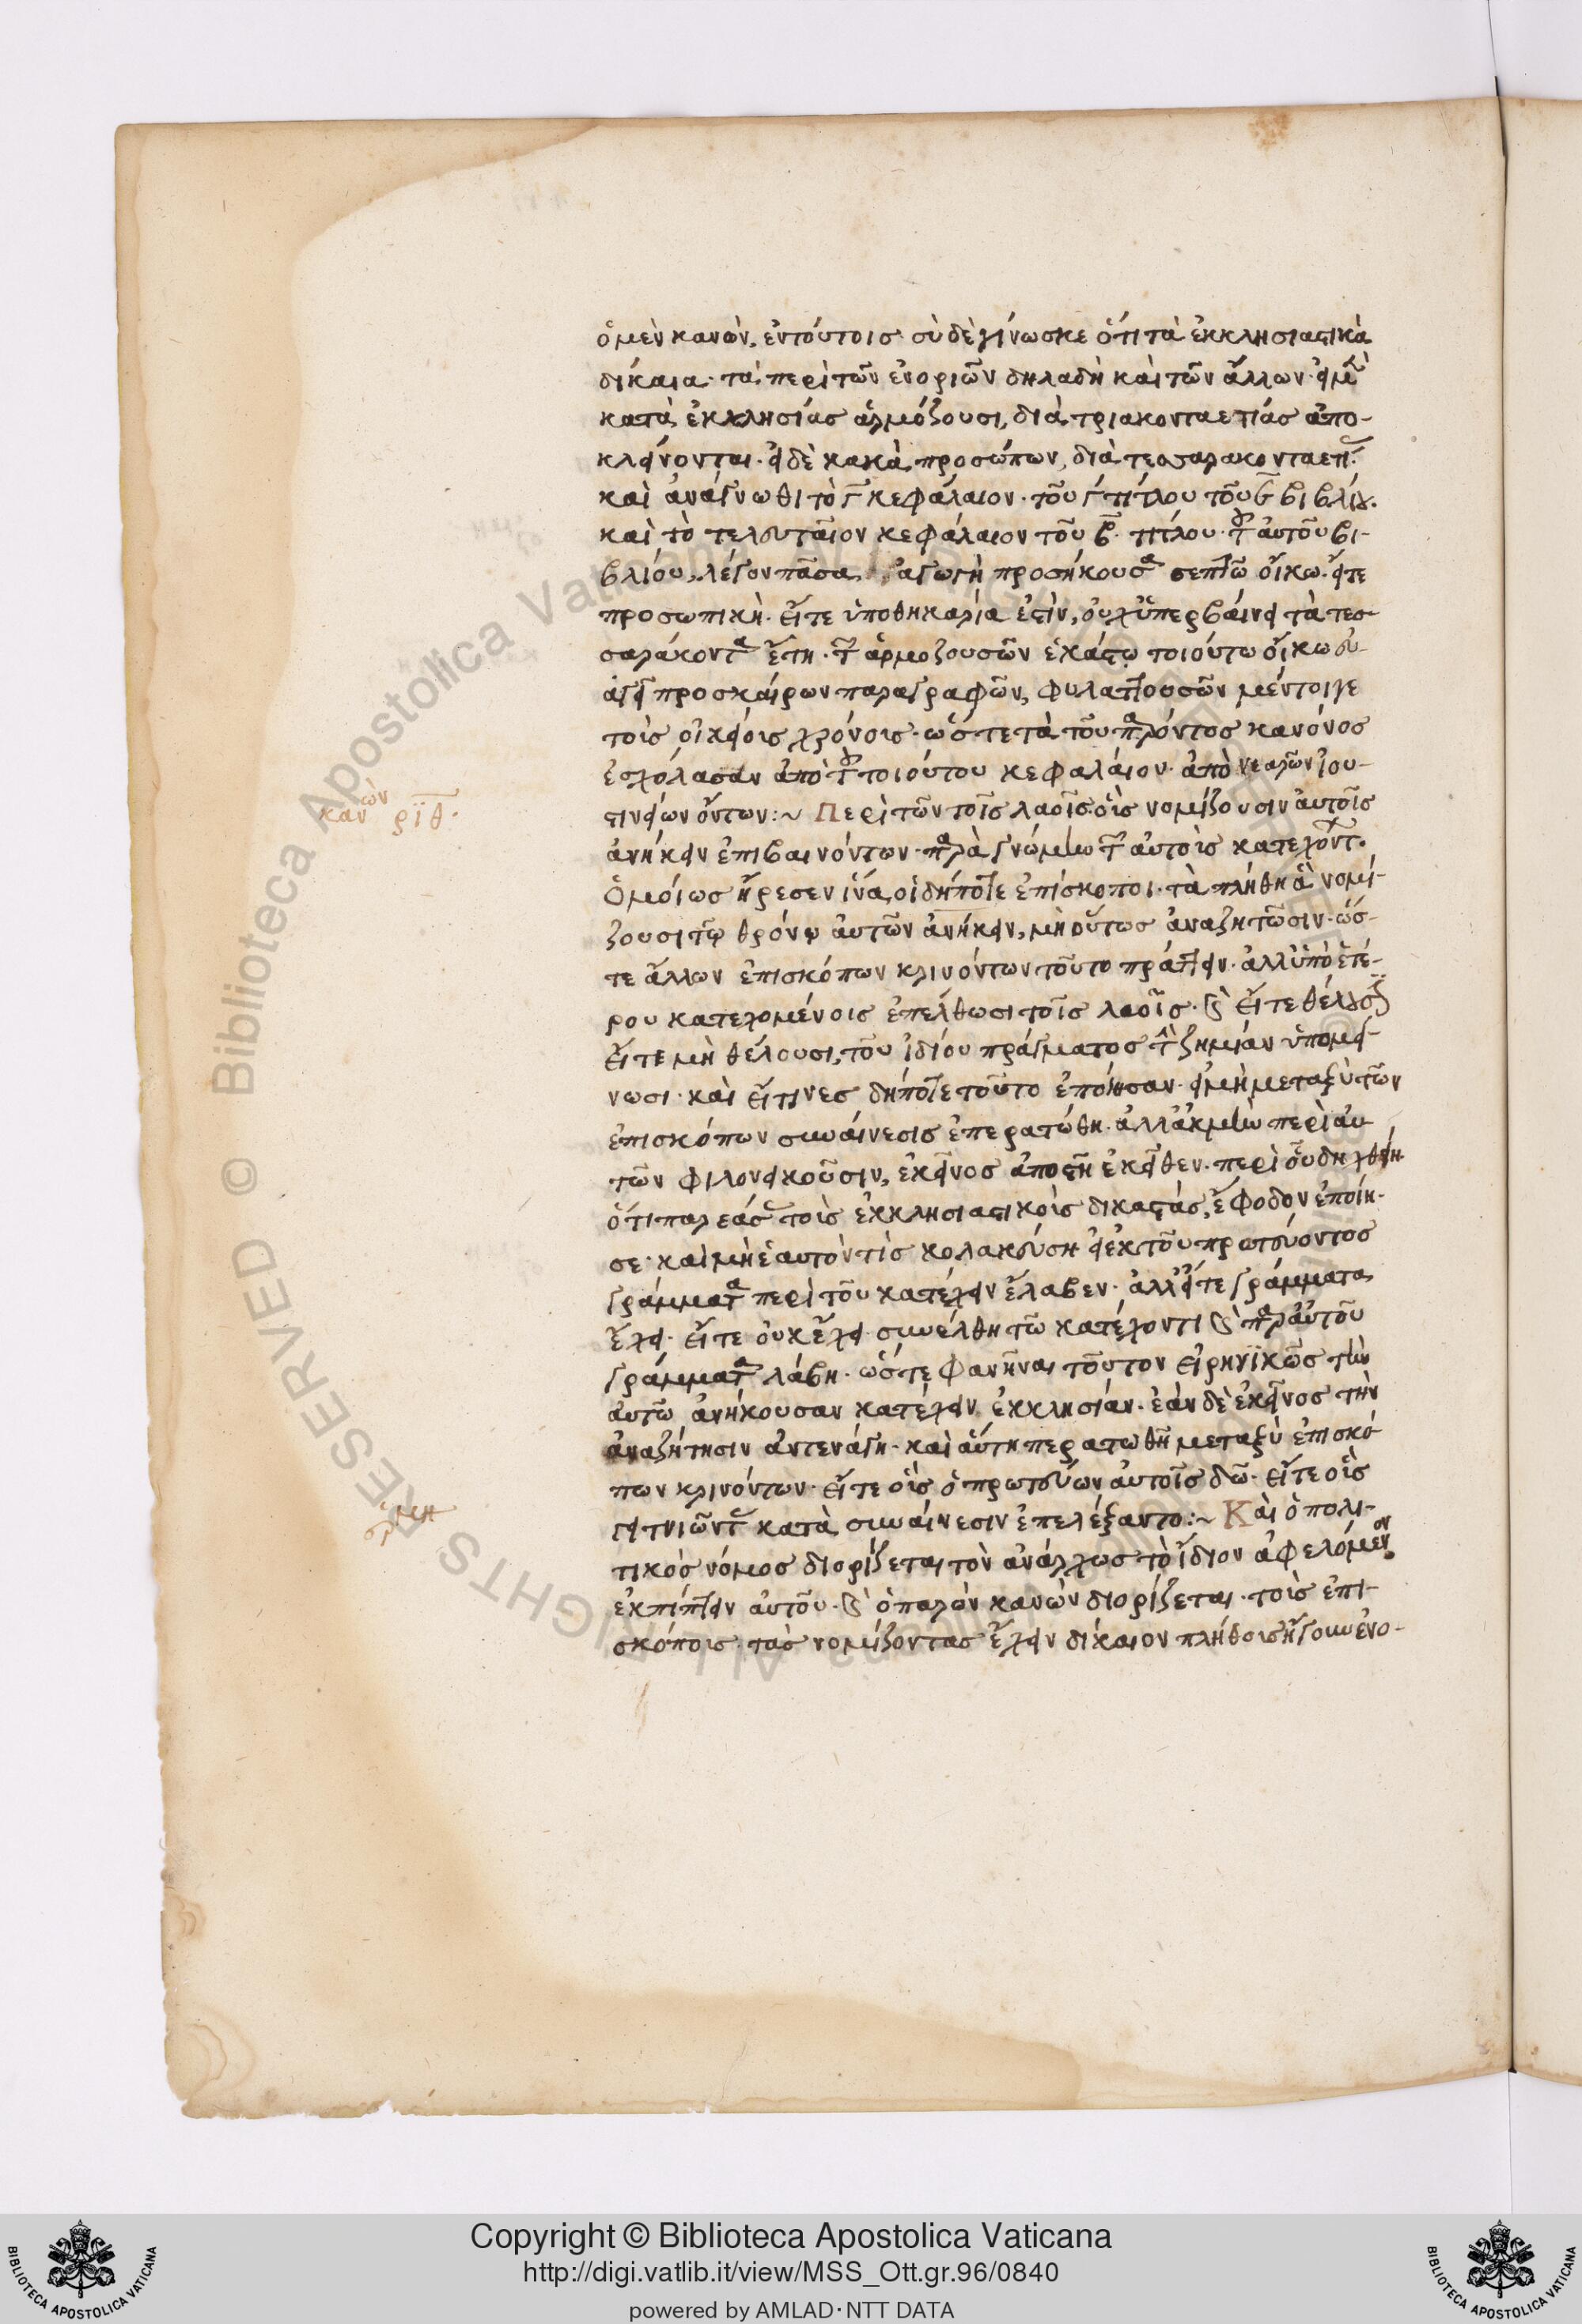 ὁ μὲν κανὼν, ἐν τούτοις· σὺ δὲ γίνωσκε ὅτι τὰ ἐκκλησιαστικὰ
δίκαια· τὰ περὶ τῶν ἐνοριῶν δηλαδὴ καὶ τῶν ἄλλων· εἰ μὲν
κατὰ ἐκκλησίας ἁρμόζουσι, διὰ τριακονταετίας ἀπο-
κλείονται· εἰ δὲ κατὰ προσώπων, διὰ τεσσαρακονταετ
καὶ ἀνάγνωθι τὸ γ κεφάλαιον· τοῦ γ τίτλου τοῦ ϛ βιβλίου.
καὶ τὸ τελευταῖον κεφάλαιον τοῦ β· τίτλου· τοῦ αὐτοῦ βι-
βλίου, λέγον πᾶσα ἀγωγὴ προσήκουσα σεπτῶ οἴκω· εἴτε
προσωπικὴ· εἴτε ὑποθηκαρία ἐστὶν, οὐχ ὑπερβαίνει τὰ τεσ-
σαράκοντα ἔτη· τῶν ἁρμοζουσῶν ἑκάστω τοιούτω οἴκω εὐ-
αγεῖ προσκαίρων παραγραφῶν, φυλαττουσῶν μέντοιγε
τοῖς οἰκείοις χρόνοις· ὥστε τὰ τοῦ παρόντος κανόνος
ἐσχόλασαν ἀπὸ τοῦ τοιούτου κεφαλαίου· ἀπὸ νεαρῶν ἰου-
στινείων ὄντων:~ Περὶ τῶν τοῖς λαοῖς οἷς νομίζουσιν αὐτοῖς
κανών ριθ·
ἀνήκειν ἐπιβαινόντων· παρὰ γνώμην τῶν αὐτοῖς κατεχόντ.
Ὁμοίως ἤρεσεν ἵνα, οἱ δήποτε ἐπίσκοποι· τὰ πλήθη ἃ νομί-
ζουσι τῷ θρόνῳ αὐτῶν ἀνήκειν, μὴ οὕτως ἀναζητῶσιν· ὥσ-
τε ἄλλων ἐπισκόπων κρινόντων τοῦτο πράττειν· ἀλλ' ὑπὸ ἑτέ-
ρου κατεχομένοις ἐπέλθωσι τοῖς λαοῖς· καὶ εἴτε θέλουσι
εἴτε μὴ θέλουσι, τοῦ ἰδίου πράγματος τὴν ζημίαν ὑπομεί-
νωσι· καὶ εἴτινες δήποτε τοῦτο ἐποίησαν· εἰ μὴ μεταξὺ τῶν
ἐπισκόπων συναίνεσις ἐπερατώθη· ἀλλ' ἀκμὴν περὶ αὐ
τῶν φιλονεικοῦσιν, ἐκεῖνος ἀποστῆ ἐκεῖθεν· περὶ οὗ δηχθείη
ὅτι παρεάσας τοῖς ἐκκλησιαστικοῖς δικαστὰς, ἔφοδον ἐποίη-
σε· καὶ μὴ ἑαυτὸν τὶς κολακεύση εἰ ἐκ τοῦ πρωτεύοντος
γράμματα περὶ τοῦ κατέχειν ἔλαβεν· ἀλλ' εἴτε γράμματα
ἔχει· εἴτε οὐκ ἔχει· συνέλθη τῶ κατέχοντι καὶ παρ' αὐτοῦ
γράμματα λάβη· ὥστε φανῆναι τοῦτον εἰρηνϊκῶς τὴν
αὐτῶ ἀνήκουσαν κατέχειν ἐκκλησίαν· ἐὰν δὲ ἐκεῖνος τὴν
ἀναζήτησιν ἀντενάγη· καὶ αὕτη περατωθῆ μεταξὺ ἐπισκό
πων κρινόντων· εἴτε οἷς ὁ πρωτεύων αὐτοῖς δῶ· εἴτε οἷς
γειτνιῶντας κατὰ συναίνεσιν ἐπελέξαντο:~ Καὶ ὁ πολι-
τικὸς νόμος διορίζεται τὸν ἀνάρχως τὸ ἴδιον ἀφελόμενον
ἐκπίπτειν αὐτοῦ· καὶ ὁ παρὼν κανὼν διορίζεται· τοῖς ἐπι-
σκόποις· τὰς νομίζοντας ἔχειν δίκαιον πλήθοις ἤγουν ἐνο-